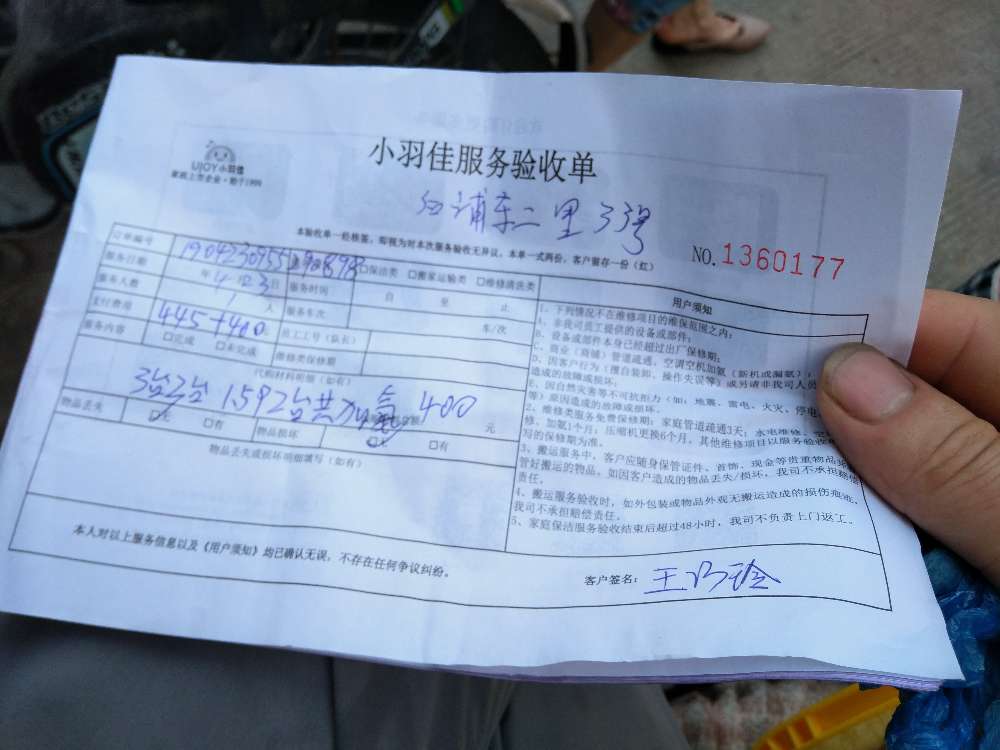 UJOY小羽佳
家政上市企业·始于1999
小羽佳服务验收单
浦东二里33号
本验收单一经核签,即视为对本次服务验收无异议,本单一式两份,客户留存一份(红)
NO.1360177
订单编号 19042309551
□保洁类 □搬家运输类 □维修清洗类
服务日期 年4 23日 服务时间 自 至 止
服务人数 1人 服务车次 车/次
支付费用 445+400元 员工工号(队长)
服务内容 □完成 □未完成 维修类保修期
代购材料明细(如有)
3台2台 1.5P2台共加氟 400元
物品丢失 □无 □有 物品损坏 □无 □有
物品丢失或损坏明细填写(如有)
本人对以上服务信息以及《用户须知》均已确认无误,不存在任何争议纠纷。
用户须知
1、下列情况不在维修项目的维保范围之内:
A、非我司员工提供的设备或部件;
B、设备或部件本身已经超过出厂保修期;
C、商业(商铺)管道疏通、空调空机加氨(新机或漏氨);
D、因客户行为(擅自装卸、操作失误等)或另请非我司人员
造成的故障或损坏;
E、因自然灾害等不可抗拒力(如:地震、雷电、火灾、停电
等)原因造成的故障或损坏。
2、维修类服务免费保修期:家庭管道疏通3天;水电维修、
修、加氨1个月;压缩机更换6个月,其他维修项目以服务验收
写的保修期为准。
3、搬运服务中,客户应随身保管证件、首饰、现金等贵重物品
管好搬运的物品。如因客户造成的物品丢失/损坏,我司不承担赔偿
责任。
4、搬运服务验收时,如外包装或物品外观无搬运造成的损伤痕迹,
我司不承担赔偿责任。
5、家庭保洁服务验收结束后超过48小时,我司不负责上门返工。
客户签名:王巧玲